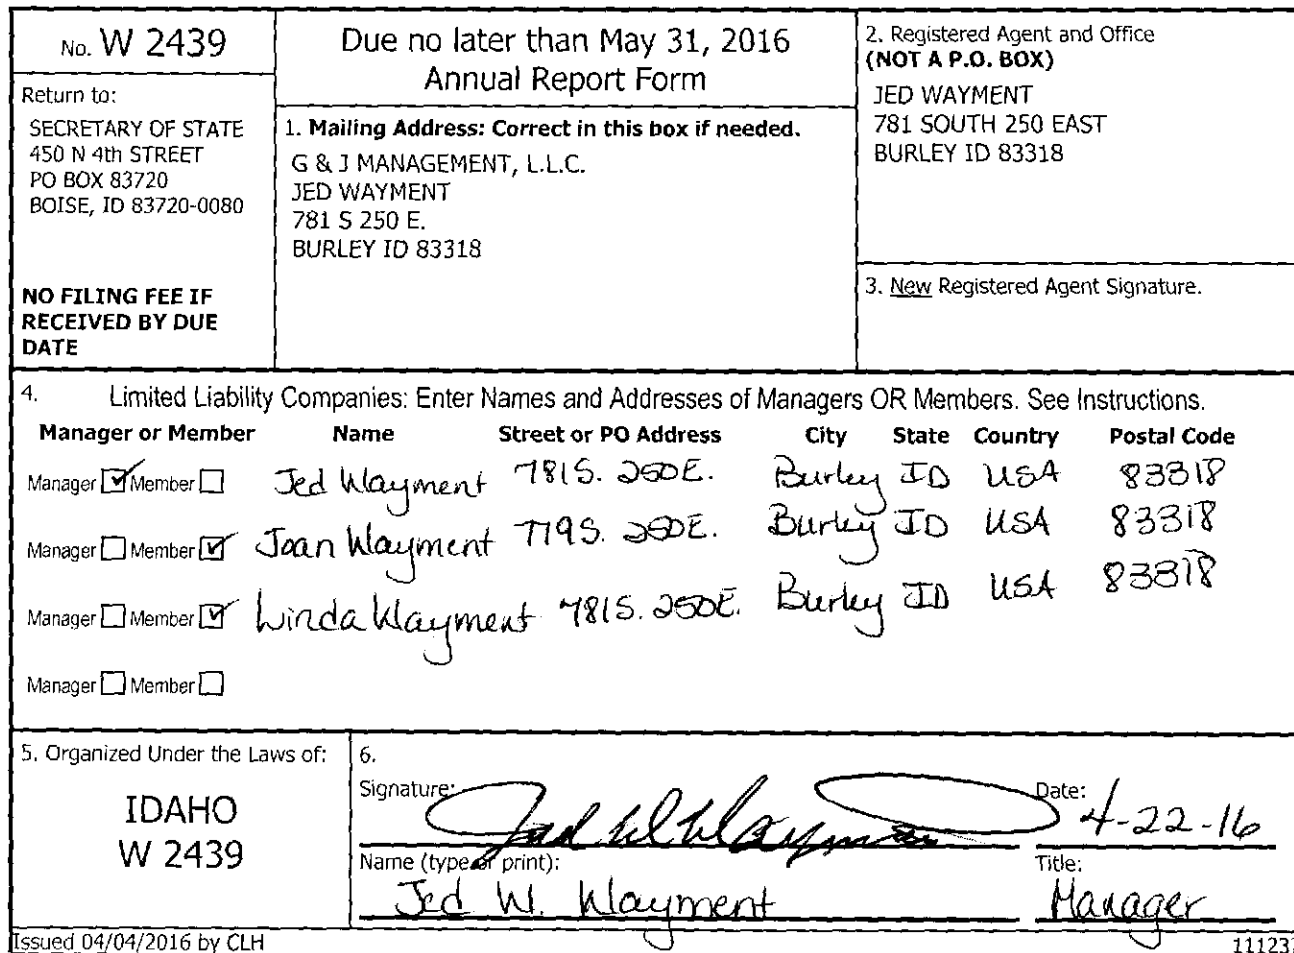 No. W 2439
Return to:
SECRETARY OF STATE
450 N 4th STREET
PO BOX 83720
BOISE, ID 83720-0080
NO FILING FEE IF
RECEIVED BY DUE
DATE
Due no later than May 31, 2016
Annual Report Form
1. Mailing Address: Correct in this box if needed.
G & J MANAGEMENT, L.L.C.
JED WAYMENT
781 S 250 E.
BURLEY ID 83318
2. Registered Agent and Office
(NOT A P.O. BOX)
JED WAYMENT
781 SOUTH 250 EAST
BURLEY ID 83318
3. New Registered Agent Signature.
4. Limited Liability Companies: Enter Names and Addresses of Managers OR Members. See Instructions.
Manager or Member Name Street or PO Address City State Country Postal Code
Manager Member Jed Wayment 781 S. 250 E. Burley ID USA 83318
Manager Member Joan Wayment 779 S. 250 E. Burley ID USA 83318
Manager Member Linda Wayment 781 S. 250 E. Burley ID USA 83318
Manager Member
5. Organized Under the Laws of:
IDAHO
W 2439
6.
Signature: Jed W Wayment Date: 4-22-16
Name (type or print): Title:
Jed W. Wayment Manager
Issued 04/04/2016 by CLH